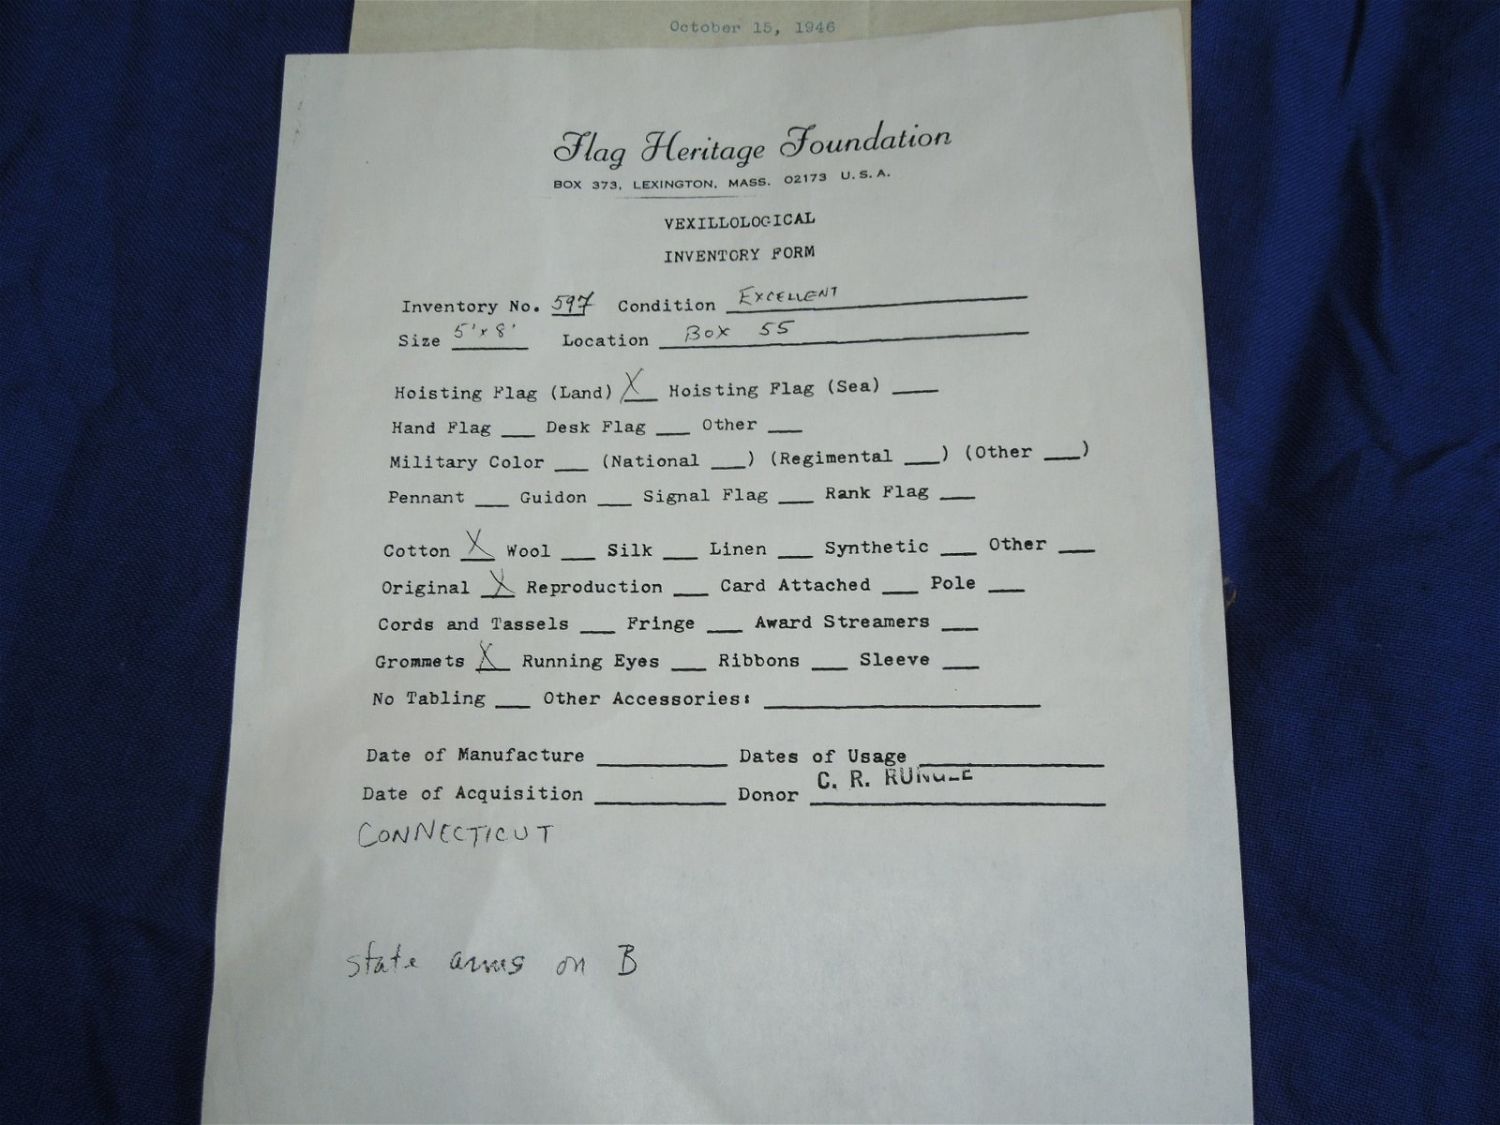 October 15, 1946
Flag Heritage Foundation
BOX 373, LEXINGTON, MASS. 02173 U.S.A.
VEXILLOLOGICAL
INVENTORY FORM
Inventory No. 597 Condition EXCELLENT
Size 5' x 8' Location Box 55
Hoisting Flag (Land) X Hoisting Flag (Sea) ___
Hand Flag ___ Desk Flag ___ Other ___
Military Color ___ (National ___) (Regimental ___) (Other ___)
Pennant ___ Guidon ___ Signal Flag ___ Rank Flag ___
Cotton X Wool ___ Silk ___ Linen ___ Synthetic ___ Other ___
Original X Reproduction ___ Card Attached ___ Pole ___
Cords and Tassels ___ Fringe ___ Award Streamers ___
Grommets X Running Eyes ___ Ribbons ___ Sleeve ___
No Tabling ___ Other Accessories: ___
Date of Manufacture ___ Dates of Usage ___
Date of Acquisition ___ Donor C. R.
CONNECTICUT
state arms on B